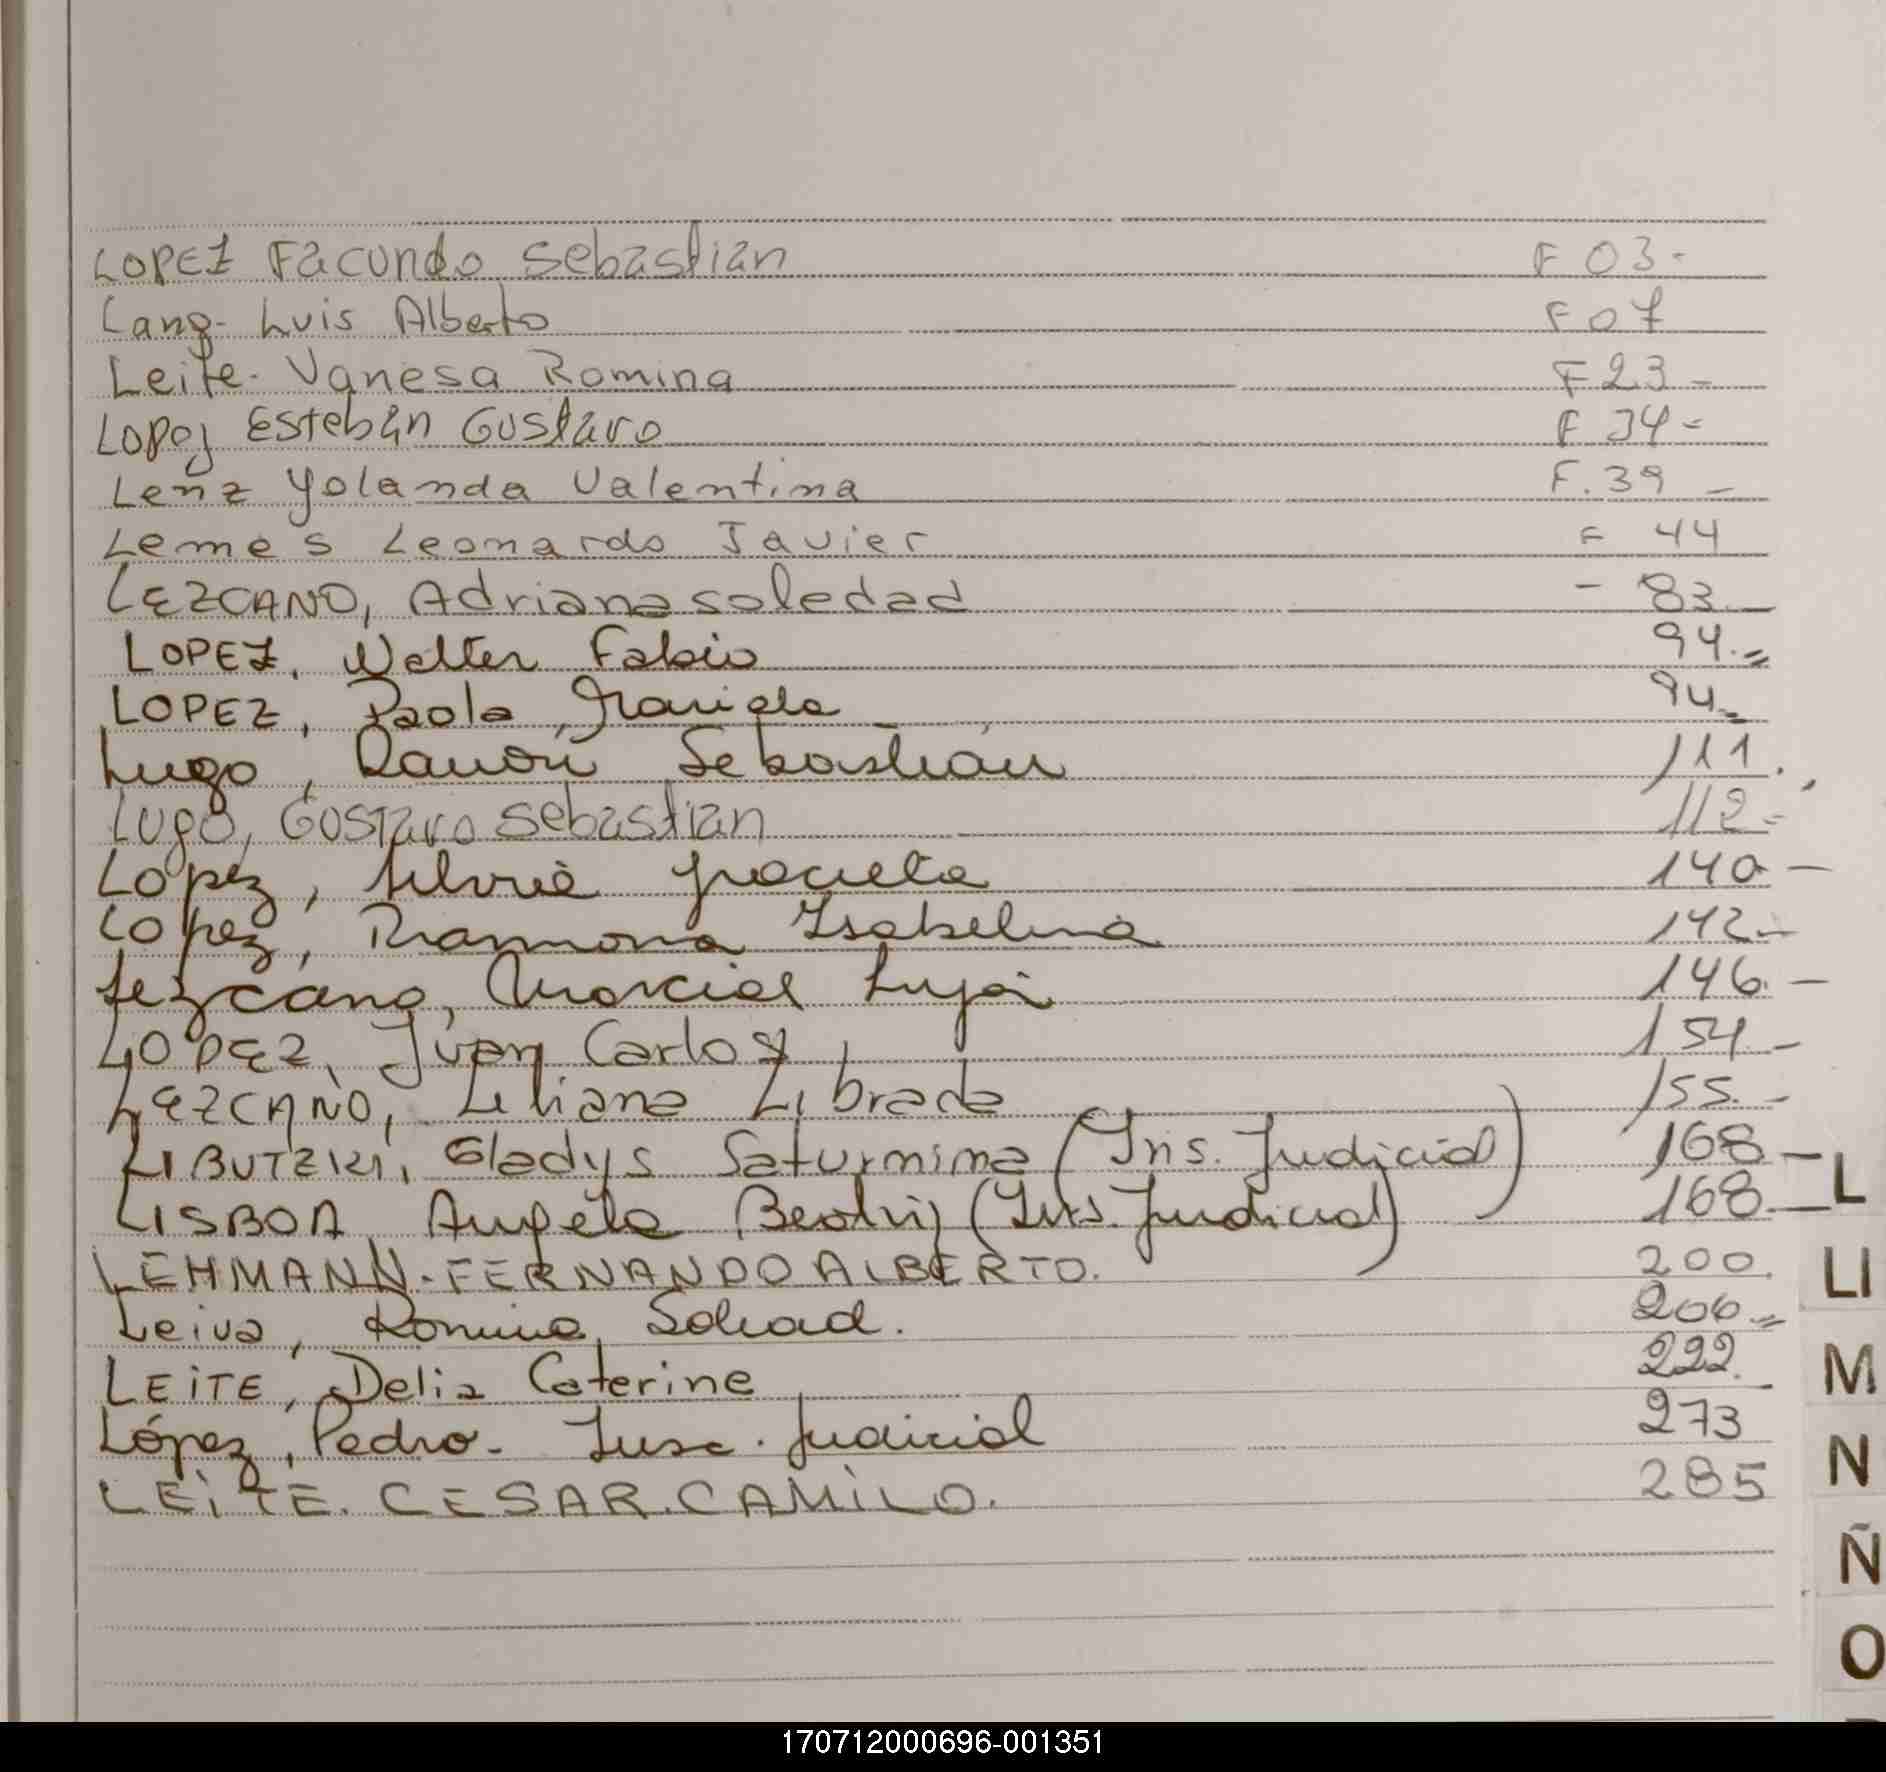 LOPEZ Facundo Sebastian F 03-
Lang- Luis Alberto F 07
Leite- Vanesa Romina F 23-
LOPEZ Esteban Gustavo F 34-
Lenz Yolanda Valentina F. 39-
Lemes Leonardo Javier F 44
LEZCANO, Adriana soledad - 83-
LOPEZ, Walter Fabio 94.=
LOPEZ, Paola Mariela 94=
Lugo, Ramón Sebastián 111.
LUGO, Gustavo Sebastian 112-
Lopez, Silvia Graciela 140-
Lopez, Ramona Isabelina 142-
Lezcano, Marcial Luján 146.-
LOPEZ, Juan Carlos 154-
LEZCANO, Liliana Librada 155.-
LIBUTZKI, Gladys Saturnina (Ins. Judicial) 168-
LISBOA Angela Beatriz (Ins. Judicial) 168-
LEHMANN-FERNANDO ALBERTO. 200.
Leiva, Romina Soledad. 206.=
LEITE, Delia Caterine 222.
López, Pedro- Insc. Judicial 273
LEITE. CESAR.CAMILO. 285
L
LI
M
N
Ñ
O
170712000696-001351